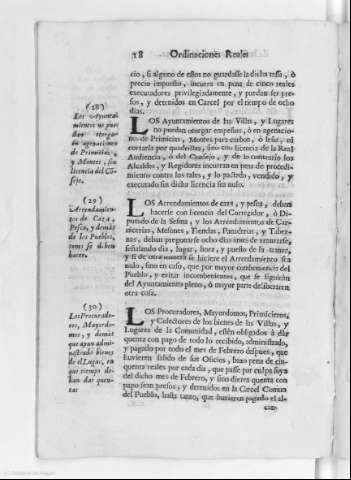 18 Ordinaciones Reales
cio, si alguno de ellos no guardasse la dicha tassa, ò
precio impuesto, incurra en pena de cinco reales
executadores privilegiadamente, y puedan ser presos,
y detenidos en Carcel por el tiempo de ocho
dias.
(28)
Los Ayuntamientos no puedan otorgar
en agenaciones
de Primicias,
y Montes, sin
licencia del Consejo.
LOS Ayuntamientos de las Villas, y Lugares
no puedan otorgar empeños, ò en agenaciones
de Primicias, Montes para carbon, ò leña, ni
cortarla por quadrillas, sino con licencia de la Real
Audiencia, ò del Consejo, y de lo contrario los
Alcaldes, y Regidores incurran en pena de procedimiento
contra los tales, y lo pactado, vendido, y
executado sin dicha licencia sea nulo.
(29)
Arrendamientos
de Caza,
Pesca, y demàs
de los Pueblos,
como se deben
hacer.
LOS Arrendamientos de caza, y pesca, deben
hacerse con licencia del Corregidor, ò Diputado
de la Sesma, y los Arrendamientos de Carnicerias,
Mesones, Tiendas, Panaderias, y Tabernas,
deban pregonarse ocho dias antes de rematarse,
señalando dia, lugar, hora, y puesto de su remate,
y si de otra manera se hiciere el Arrendamiento sea
nulo, sino en caso, que por mayor conveniencia del
Pueblo, y evitar inconvenientes, que se siguieren
del Ayuntamiento pleno, ò mayor parte deliberaren
otra cosa.
(30)
Los Procuradores,
Mayordomos,
y demàs
que ayan administrado
bienes
de el Lugar, en
que tiempo deban
dar cuentas
LOS Procuradores, Mayordomos, Primicieros,
y Colectores de los bienes de las Villas, y
Lugares de la Comunidad, estèn obligados à dar
quenta con pago de todo lo recibido, administrado,
y pagado por todo el mes de Febrero despues, que
huvieren salido de sus Oficios, baxo pena de cinquenta
reales por cada dia, que passe por culpa suya
del dicho mes de Febrero, y sino dieren quenta con
pago sean presos, y detenidos en la Carcel Comun
del Pueblo, hasta tanto, que huvieren pagado el al-